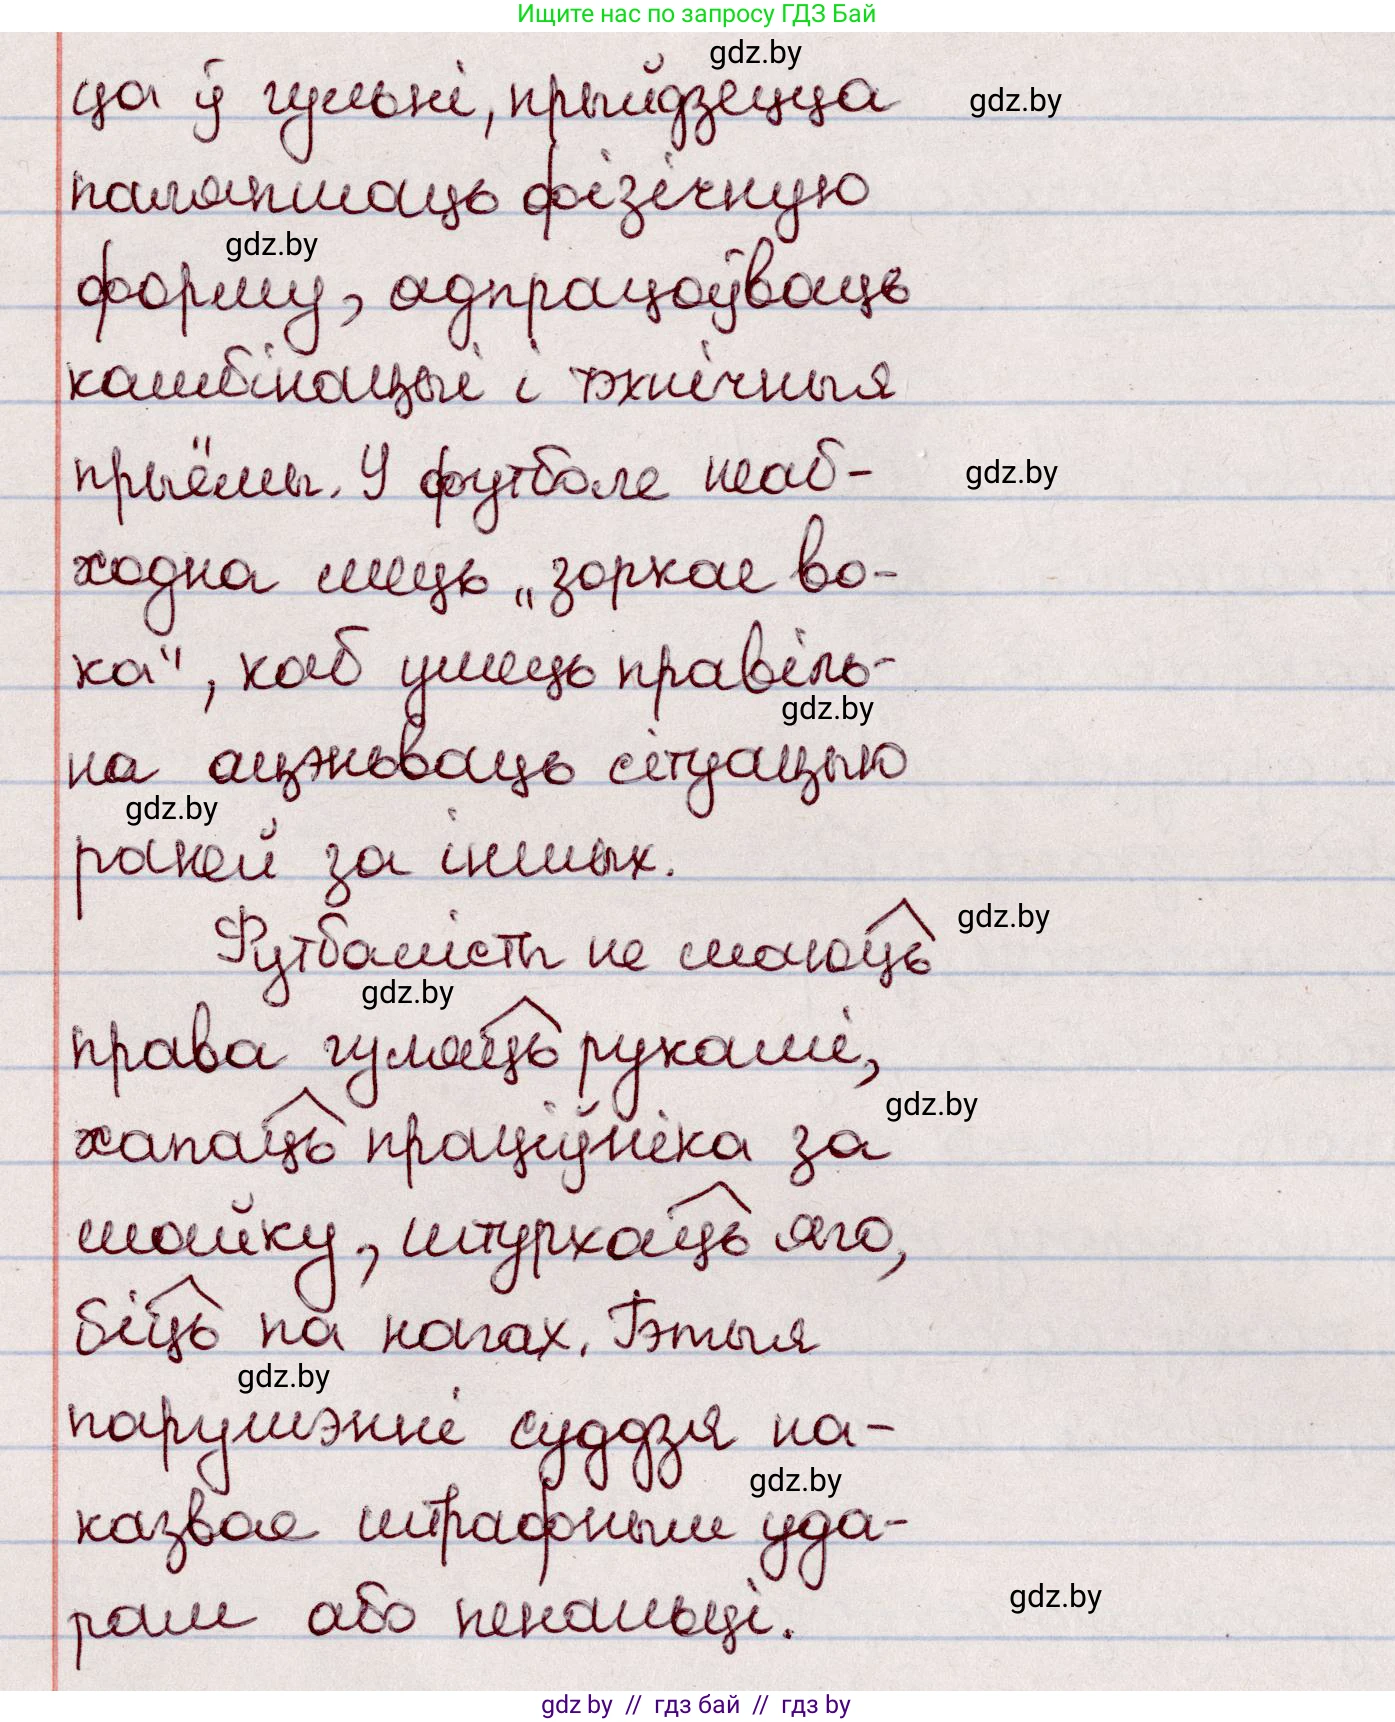 Ищите нас по запросу ГДЗ Бай
gdz.by
ца ў гульні, прыйдзецца
gdz.by
паляпшаць фізічную
gdz.by
форму, адпрацоўваць
камбінацыі і тэхнічныя
прыёмы. У футболе неаб-
gdz.by
ходна мець „зоркае во-
ка“, каб умець правіль-
gdz.by
на ацэньваць сітуацыю
gdz.by
раней за іншых.
Футбалісты не маюць
gdz.by
gdz.by
права гуляць рукамі,
хапаць праціўніка за
gdz.by
майку, штурхаць яго,
біць па нагах. Гэтыя
gdz.by
парушэнні суддзя на-
gdz.by
казвае штрафным уда-
рам або пенальці.
gdz.by
gdz by // гдз бай // гдз by